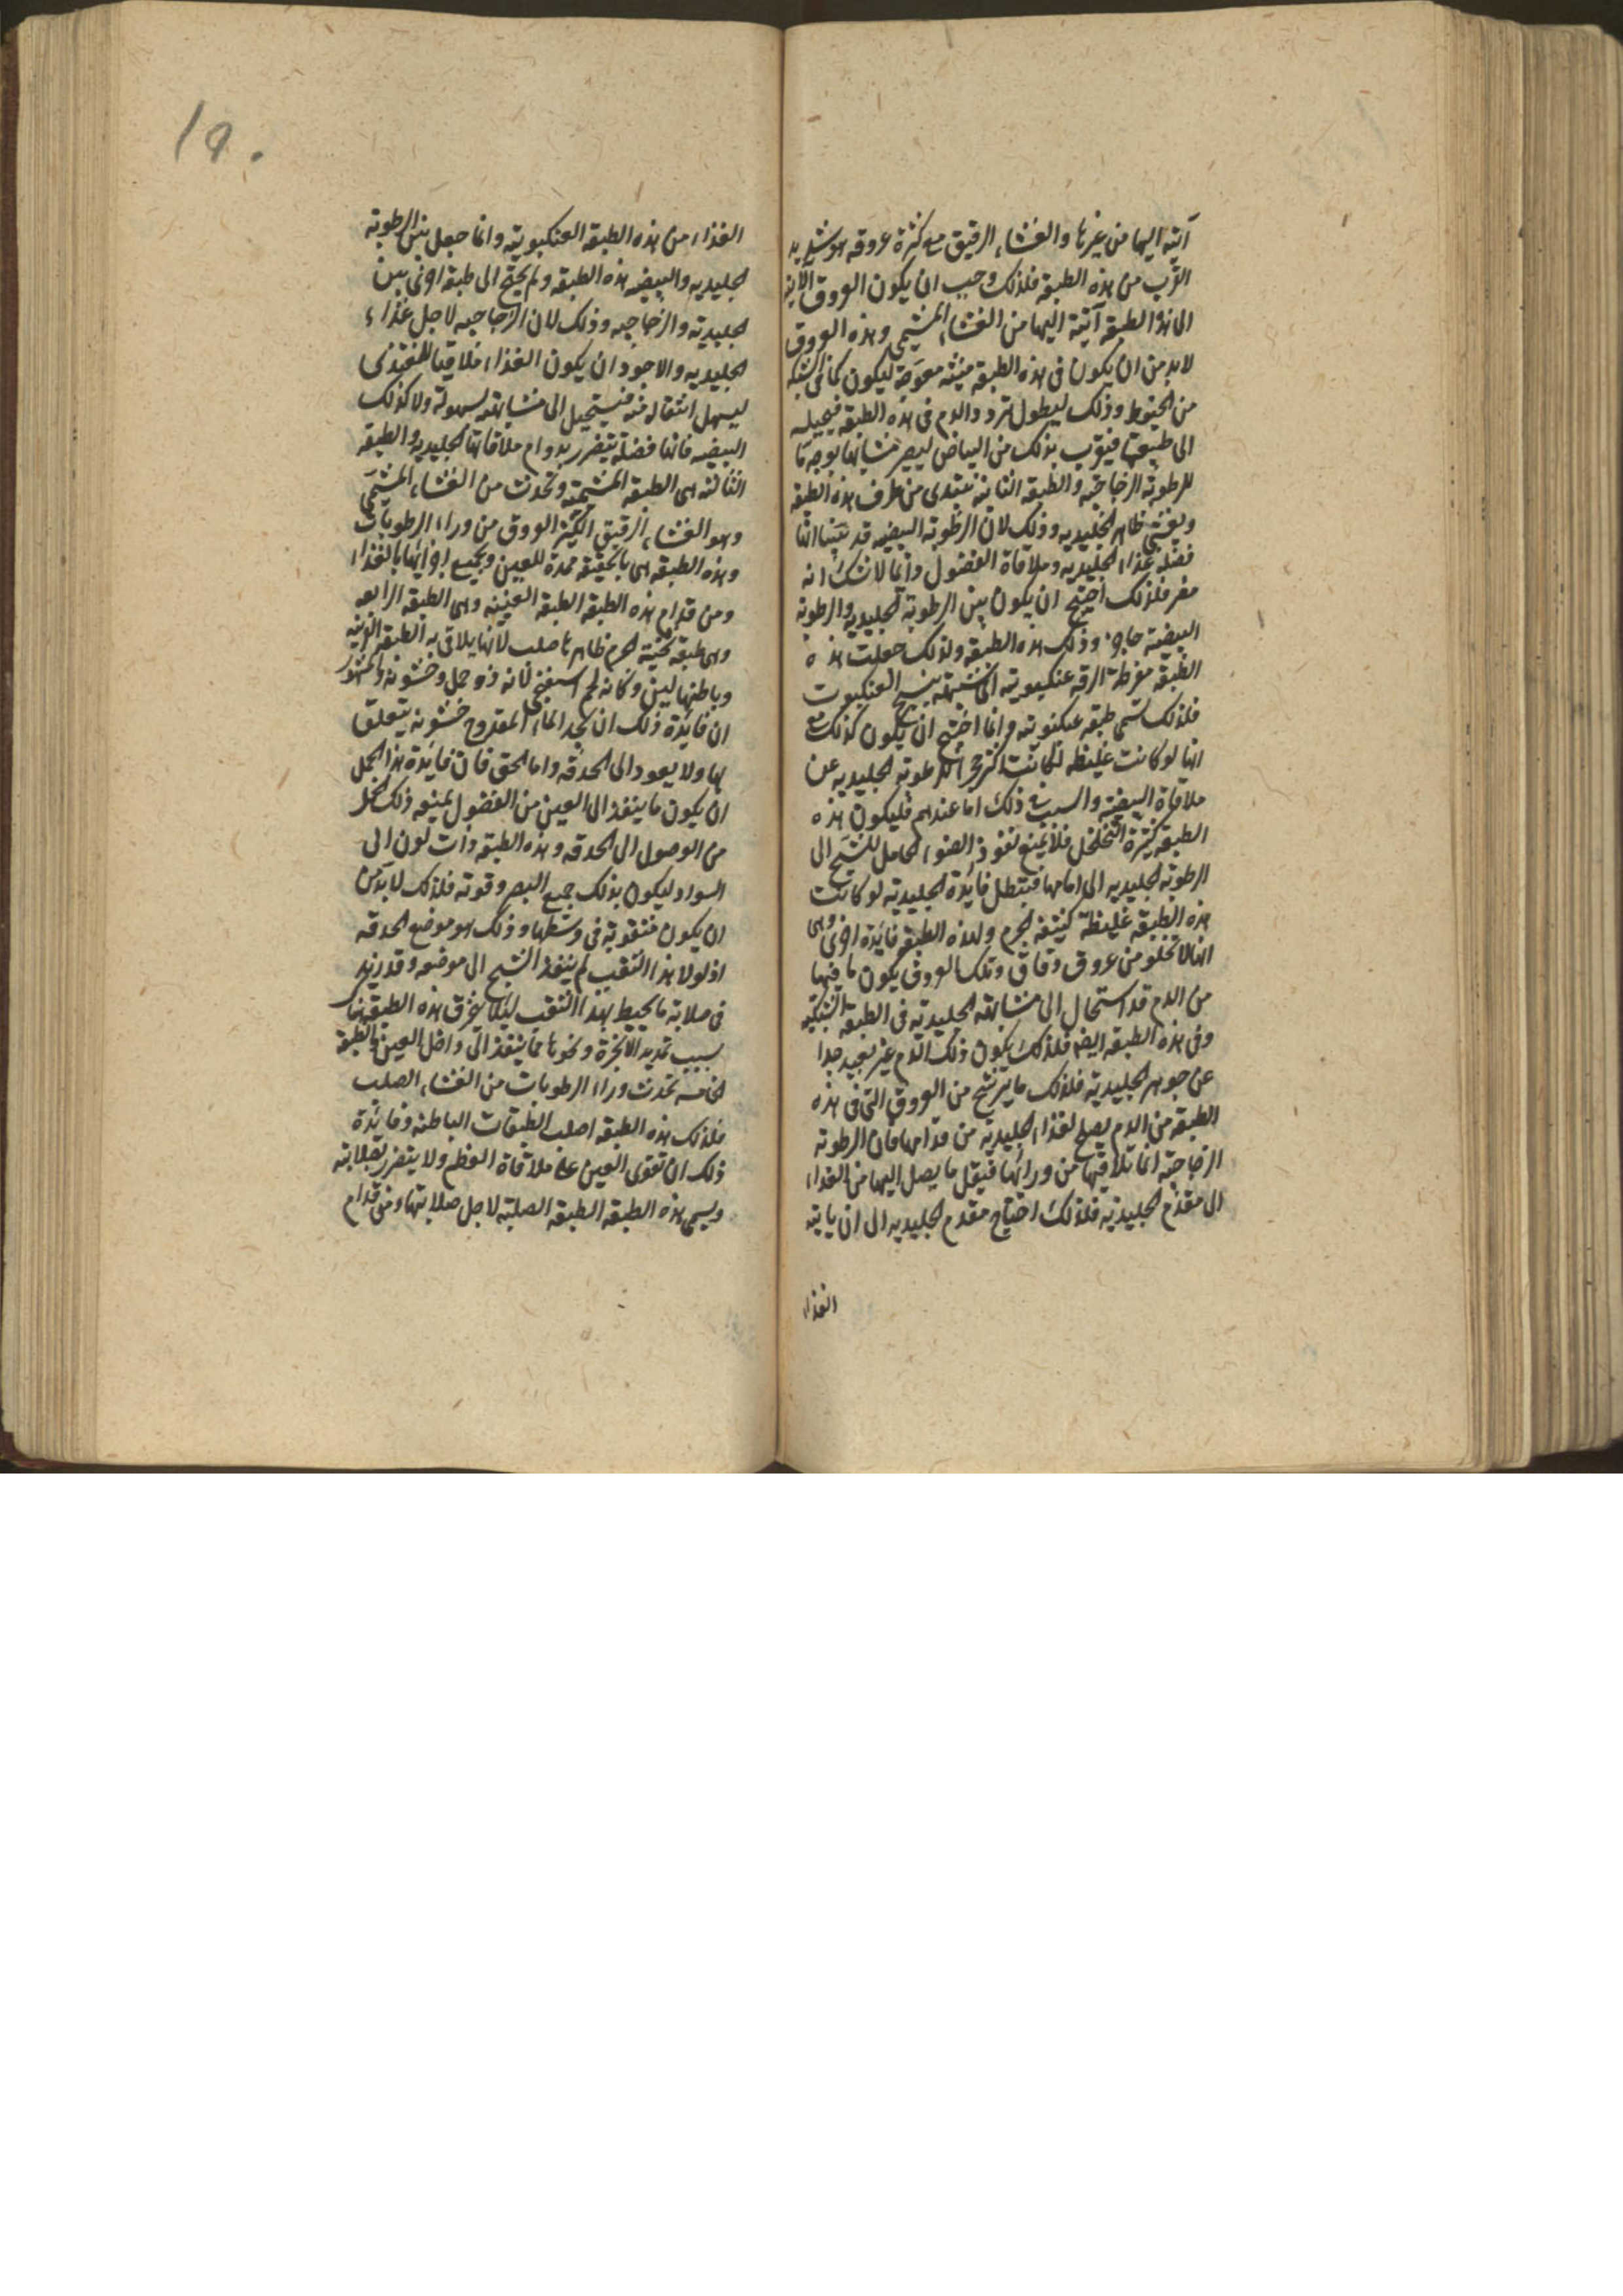 آتية اليها من غيرها والغشاء الرقيق مع كثرة عروقه هو شديد
القرب من هذه الطبقة فلذلك وجب ان يكون العروق الآتية
الى هذه الطبقة آتية اليها من الغشاء المشيمى وهذه العروق
لابد من ان يكون فى هذه الطبقة منبثه معوجة ليكون كما فى الشبكه
من الخيوط وذلك ليطول تردد الدم فى هذه الطبقة فيحيله
الى طبيعتها فيقرب بذلك من البياض ليصير مشابها بوجه ما
للرطوبة الزجاجيه والطبقه الثانية تبتدى من طرف هذه الطبقة
ويغشى ظاهر الجليديه وذلك لان الرطوبة البيضيه قد بينا انها
فضلة غذاء الجليديه وملاقاة الفضول دائما لاشك انه
مضر فلذلك احتيج ان يكون بين الرطوبة الجليديه والرطوبة
البيضية حاجز وذلك هذه الطبقة ولذلك جعلت هذه
الطبقه مفرطة الرقه عنكبوتيه اى شبيهة بنسج العنكبوت
فلذلك تسمى طبقه عنكبوتيه وانما احتيج ان يكون كذلك مع
انها لو كانت غليظه لكانت اكثر حجزا للرطوبة الجليديه عن
ملاقاة البيضية والسبب فى ذلك اما عندهم فليكون هذه
الطبقة كثيرة التخلخل فلا يمنع نفوذ الضوء الحامل للشبح الى
الرطوبة الجليديه الى امامها فتبطل فائدة الجليدية لو كانت
هذه الطبقه غليظة كثيفة الجرم ولهذه الطبقه فائدة اخرى وهى
انها لا تخلو من عروق دقاق وتلك العروق يكون ما فيها
من الدم قد استحال الى مشابهة الجليدية فى الطبقة الشبكيه
وفى هذه الطبقه ايضا فلذلك يكون ذلك الدم غير بعيد جدا
عن جوهر الجليدية فلذلك ما يترشح من العروق التى فى هذه
الطبقه من الدم يصلح لغذاء الجليدية من قدامها فان الرطوبة
الزجاجية انما تلاقيها من ورائها فيقل ما يصل اليها من الغذاء
الى مقدم الجليدية فلذلك احتياج مقدم الجليديه الى ان ياتيه
الغذاء
١٩٠
الغذاء من هذه الطبقه العنكبوتية وانما جعل بين الرطوبة
الجليديه والبيضيه هذه الطبقه ولم يحتج الى طبقه اخرى بين
الجليدية والزجاجيه وذلك لان الزجاجيه لاجل غذاء
الجليديه والاجود ان يكون الغذاء ملاقيا للمغتذى
ليسهل انتقاله منه فيستحيل الى مشابهته بسهولة ولا كذلك
البيضيه فانها فضلة يتضرر بدوام ملاقاتها الجليديه والطبقه
الثالثه هى الطبقه المشيمية وتحدث من الغشاء المشيمى
وهو الغشاء الرقيق الكثير العروق من وراء الرطوبات
وهذه الطبقه هى بالحقيقه ممدة للعين وجميع اجزائها بالغذاء
ومن قدام هذه الطبقه الطبقه العنبيه وهى الطبقه الرابعه
وهى طبقه ثخينة الجرم ظاهرها صلب لانها يلاقى به الطبقه القرنيه
وباطنها لين وكانه لحم اسفنجى لانه ذو خمل وخشونه والمشهور
ان فائدة ذلك ان يجد الماء المقدوح خشونه يتعلق
بها ولا يعود الى الحدقه واما الحق فان فائدة هذا الخمل
ان يكون ما ينفذ الى العين من الفضول يمنعه ذلك الخمل
من الوصول الى الحدقه وهذه الطبقه ذات لون الى
السواد ليكون بذلك جمع البصر وقوته فلذلك لابد من
ان يكون مثقوبة فى وسطها وذلك هو موضع الحدقه
اذ لولا هذا الثقب لم ينفذ الشبح الى موضعه وقد زيد
فى صلابة ما يحيط بهذا الثقب ليلا يخرق هذه الطبقه هناك
بسبب تمديد الابخرة ونحوها مما ينفذ الى داخل العين والطبقه
الخامسه تحدث وراء الرطوبات من الغشاء الصلب
فلذلك هذه الطبقه اصلب الطبقات الباطنه وفائدة
ذلك ان تقوى العين على ملاقاة العظم ولا يتضرر بصلابته
ويسمى هذه الطبقه الطبقه الصلبة لاجل صلابتها ومن قدام